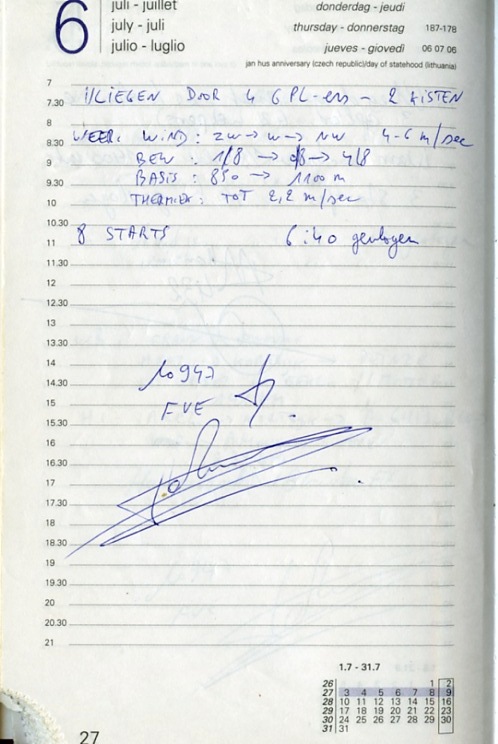 6
juli - juillet
july - juli
julio - luglio
donderdag - jeudi
thursday - donnerstag 187-178
jueves - giovedì 06 07 06
jan hus anniversary (czech republic)/day of statehood (lithuania)
7
7.30 VLIEGEN DOOR 4 GPL-ers - 2 KISTEN
8
8.30 WEER: WIND: ZW → W → NW 4-6 m/sec
9 BEW: 1/8 → 0/8 → 4/8
9.30 BASIS: 850 → 1100 m
10 THERMIEK: TOT 2,2 m/sec
10.30
11 8 STARTS 6:40 gevlogen
11.30
12
12.30
13
13.30
14
14.30 10947
15 EVE
15.30
16
16.30
17
17.30
18
18.30
19
19.30
20
20.30
21
1.7 - 31.7
26 1 2
27 3 4 5 6 7 8 9
28 10 11 12 13 14 15 16
29 17 18 19 20 21 22 23
30 24 25 26 27 28 29 30
31 31
27